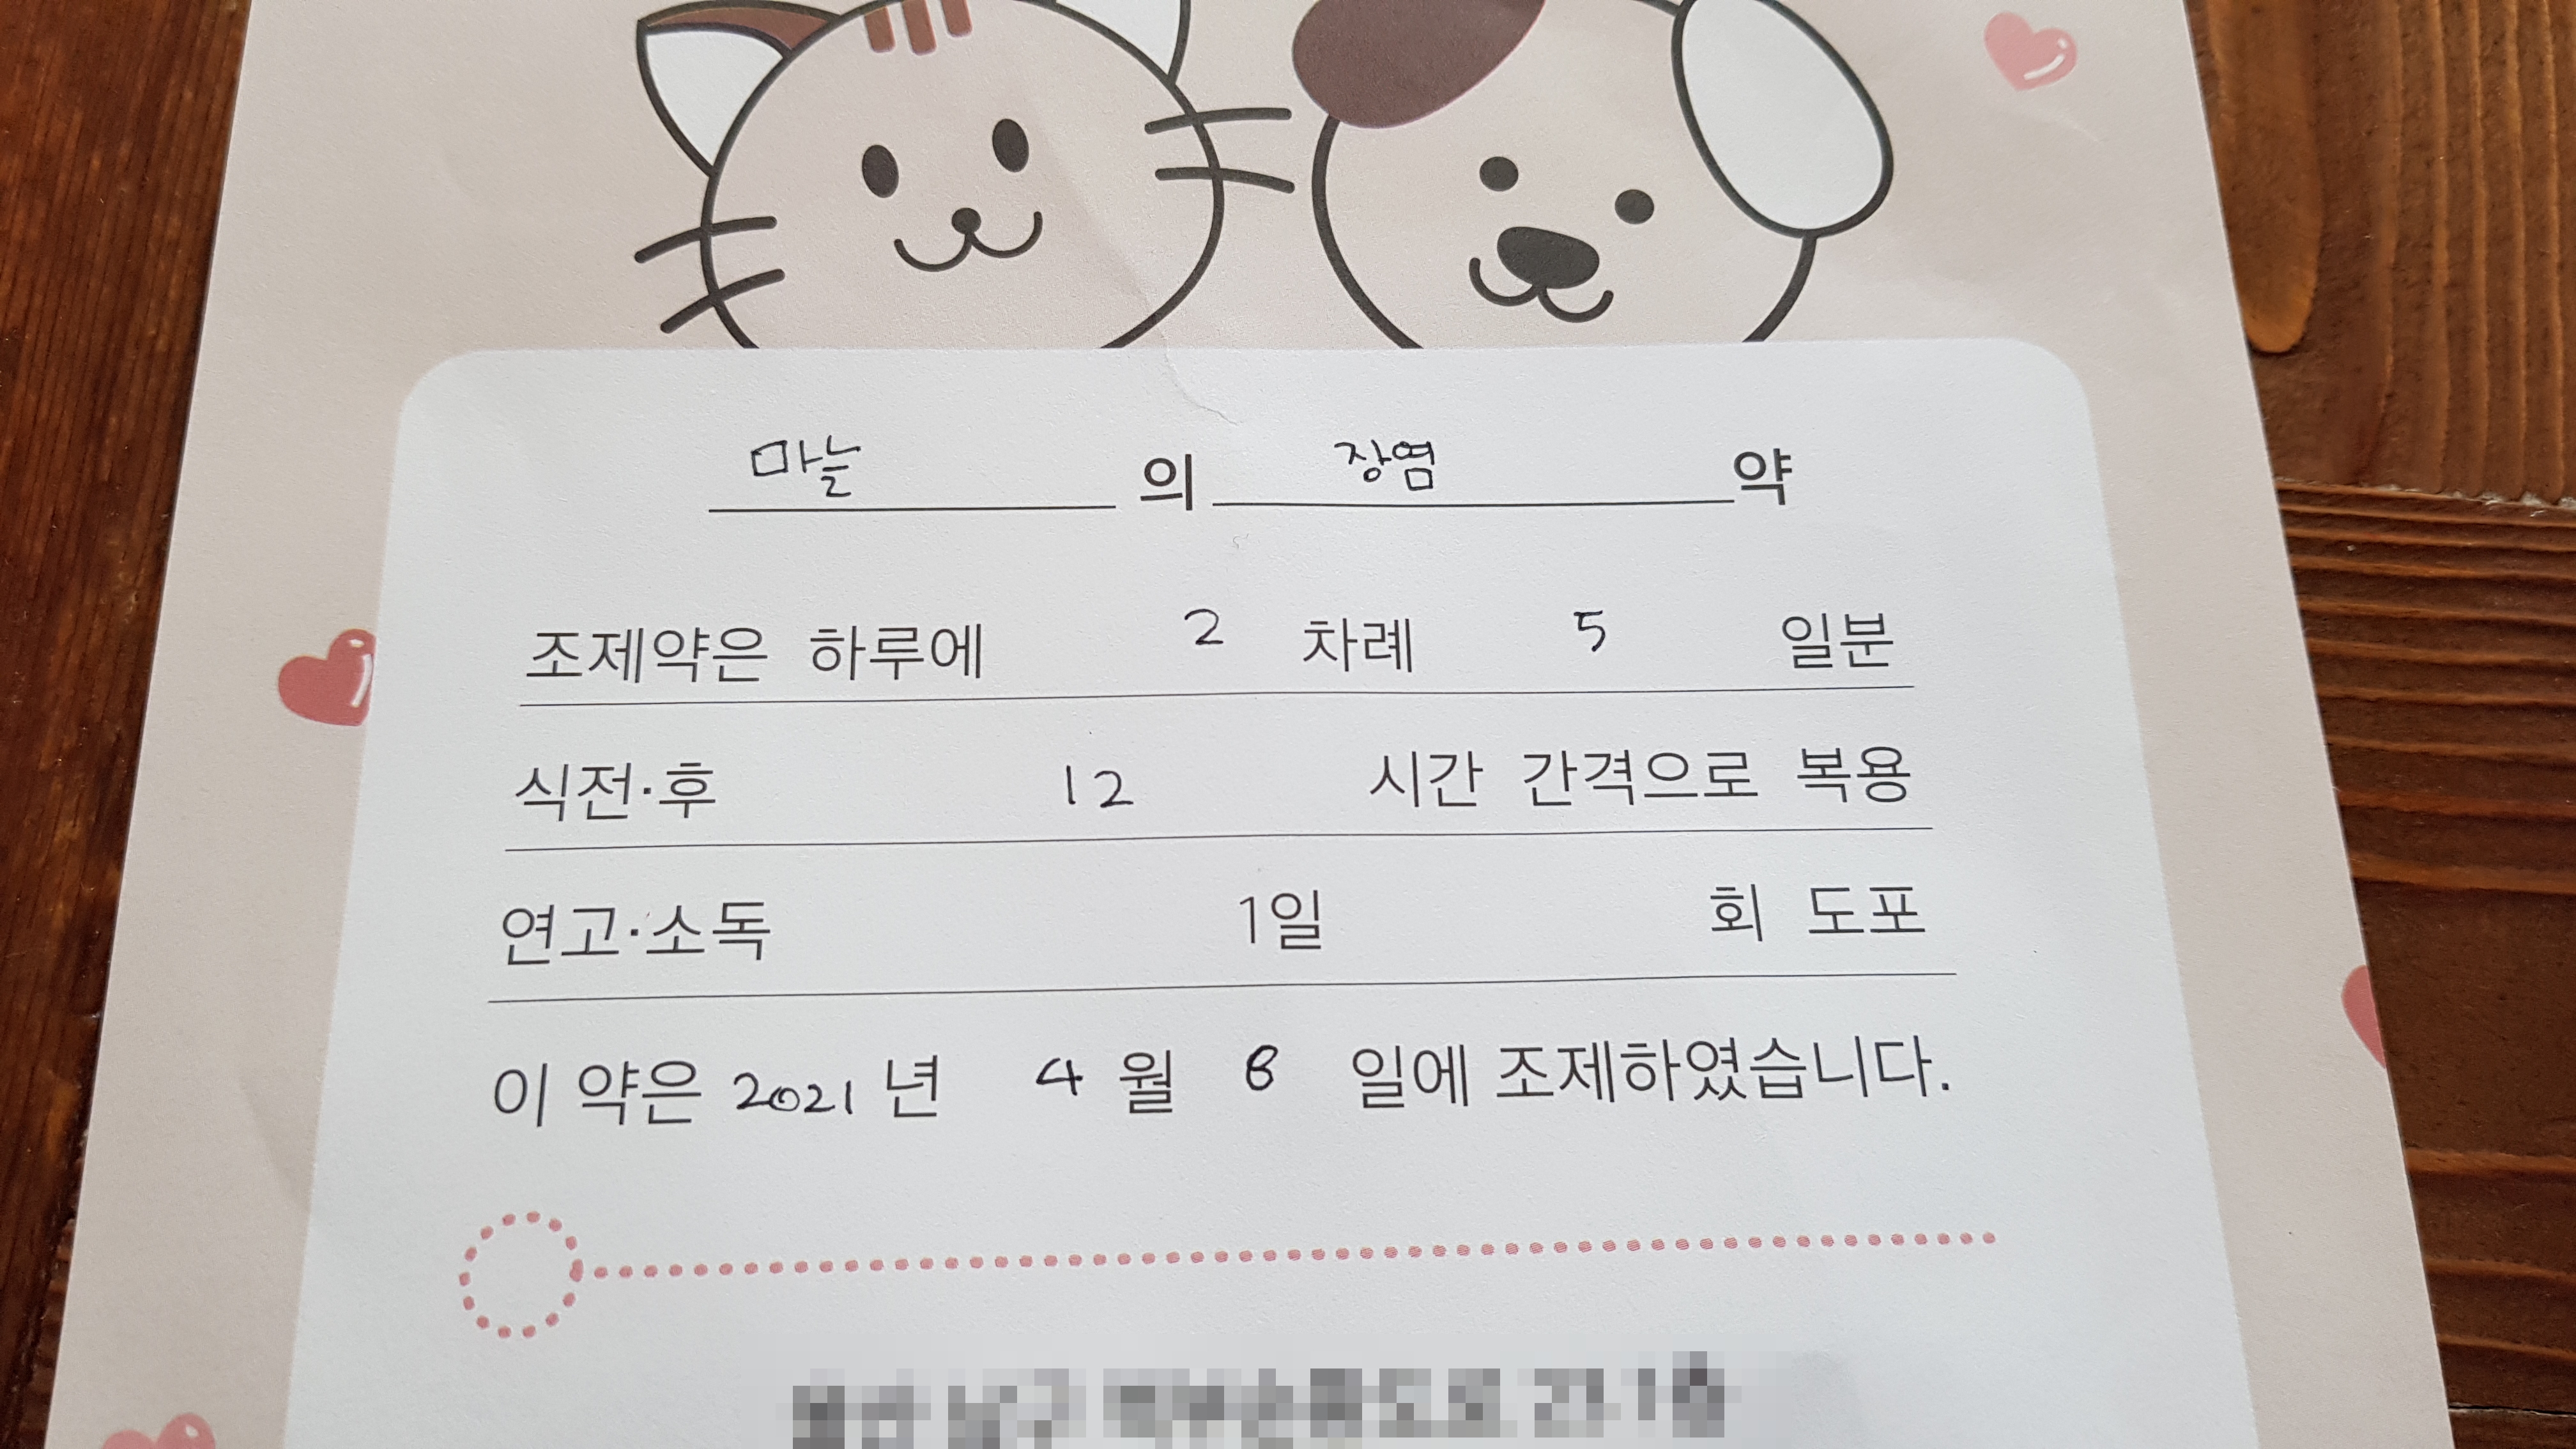 마늘 의 장염 약
조제약은 하루에 2 차례 5 일분
식전·후 12 시간 간격으로 복용
연고·소독 1일 회 도포
이 약은 2021 년 4 월 8 일에 조제하였습니다.